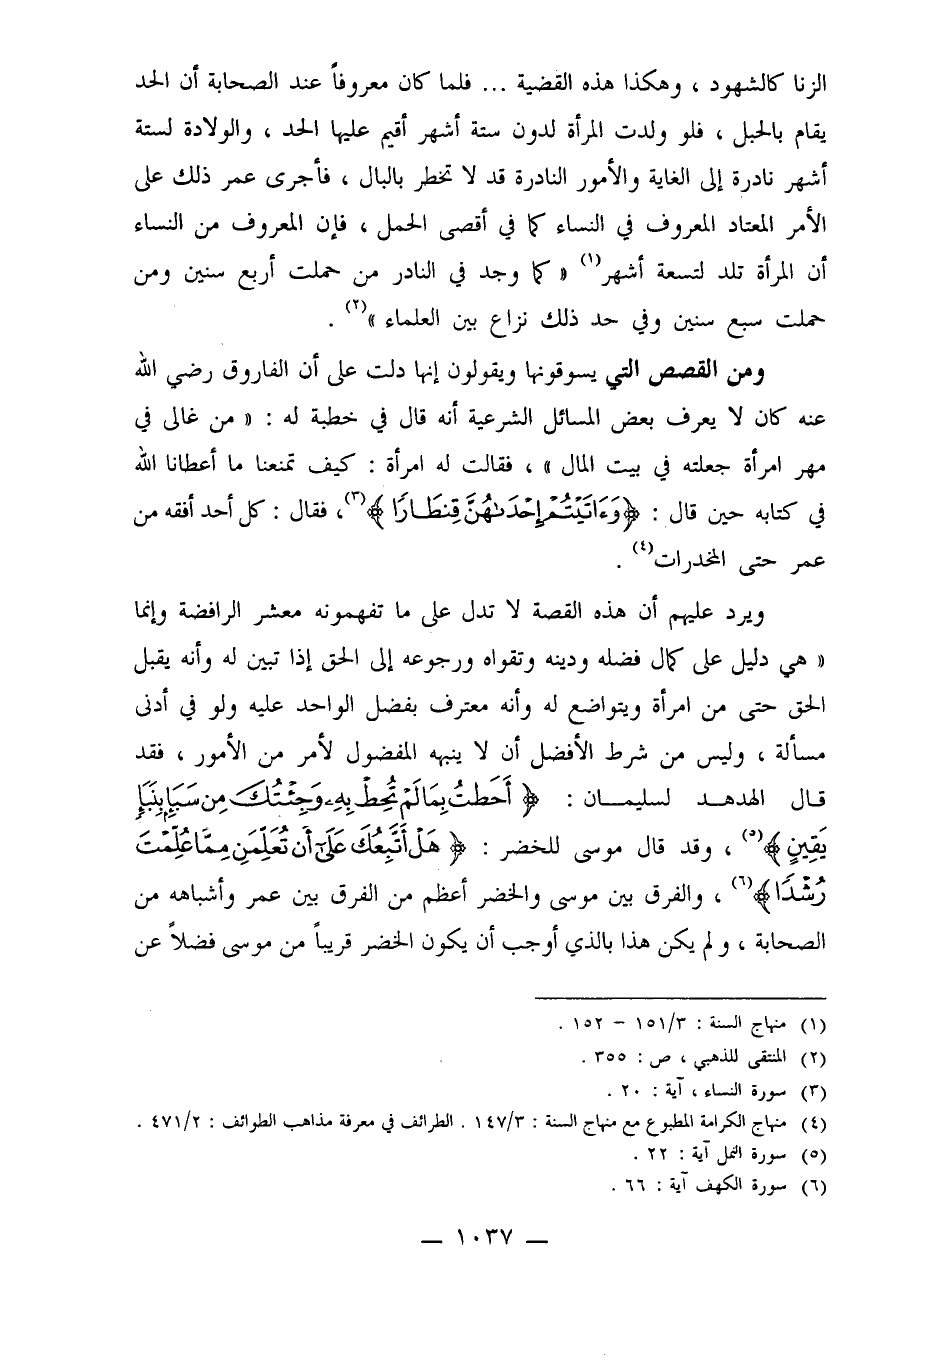 الزنا كالشهود ، وهكذا هذه القضية ... فلما كان معروفاً عند الصحابة أن الحد
يقام بالحبل ، فلو ولدت المرأة لدون ستة أشهر أقيم عليها الحد ، والولادة لستة
أشهر نادرة إلى الغاية والأمور النادرة قد لا تخطر بالبال ، فأجرى عمر ذلك على
الأمر المعتاد المعروف في النساء كما في أقصى الحمل ، فإن المعروف من النساء
أن المرأة تلد لتسعة أشهر(١) « كما وجد في النادر من حملت أربع سنين ومن
حملت سبع سنين وفي حد ذلك نزاع بين العلماء »(٢) .
ومن القصص التي يسوقونها ويقولون إنها دلت على أن الفاروق رضي الله
عنه كان لا يعرف بعض المسائل الشرعية أنه قال في خطبة له : « من غالى في
مهر امرأة جعلته في بيت المال » ، فقالت له امرأة : كيف تمنعنا ما أعطانا الله
في كتابه حين قال : ﴿وَءَاتَيْتُمْ إِحْدَىٰهُنَّ قِنطَارًا ﴾(٣)، فقال : كل أحد أفقه من
عمر حتى المخدرات(٤) .
ويرد عليهم أن هذه القصة لا تدل على ما تفهمونه معشر الرافضة وإنما
« هي دليل على كمال فضله ودينه وتقواه ورجوعه إلى الحق إذا تبين له وأنه يقبل
الحق حتى من امرأة ويتواضع له وأنه معترف بفضل الواحد عليه ولو في أدنى
مسألة ، وليس من شرط الأفضل أن لا ينبهه المفضول لأمر من الأمور ، فقد
قال الهدهد لسليمان : ﴿ أَحَطتُ بِمَا لَمْ تُحِطْ بِهِۦ وَجِئْتُكَ مِن سَبَإٍ بِنَبَإٍ
يَقِينٍ ﴾(٥) ، وقد قال موسى للخضر : ﴿ هَلْ أَتَّبِعُكَ عَلَىٰٓ أَن تُعَلِّمَنِ مِمَّا عُلِّمْتَ
رُشْدًا ﴾(٦) ، والفرق بين موسى والخضر أعظم من الفرق بين عمر وأشباهه من
الصحابة ، ولم يكن هذا بالذي أوجب أن يكون الخضر قريباً من موسى فضلاً عن
(١) منهاج السنة : ١٥١/٣ – ١٥٢ .
(٢) المنتقى للذهبي ، ص : ٣٥٥ .
(٣) سورة النساء ، آية : ٢٠ .
(٤) منهاج الكرامة المطبوع مع منهاج السنة : ١٤٧/٣ . الطرائف في معرفة مذاهب الطوائف : ٤٧١/٢ .
(٥) سورة النمل آية : ٢٢ .
(٦) سورة الكهف آية : ٦٦ .
— ١٠٣٧ —